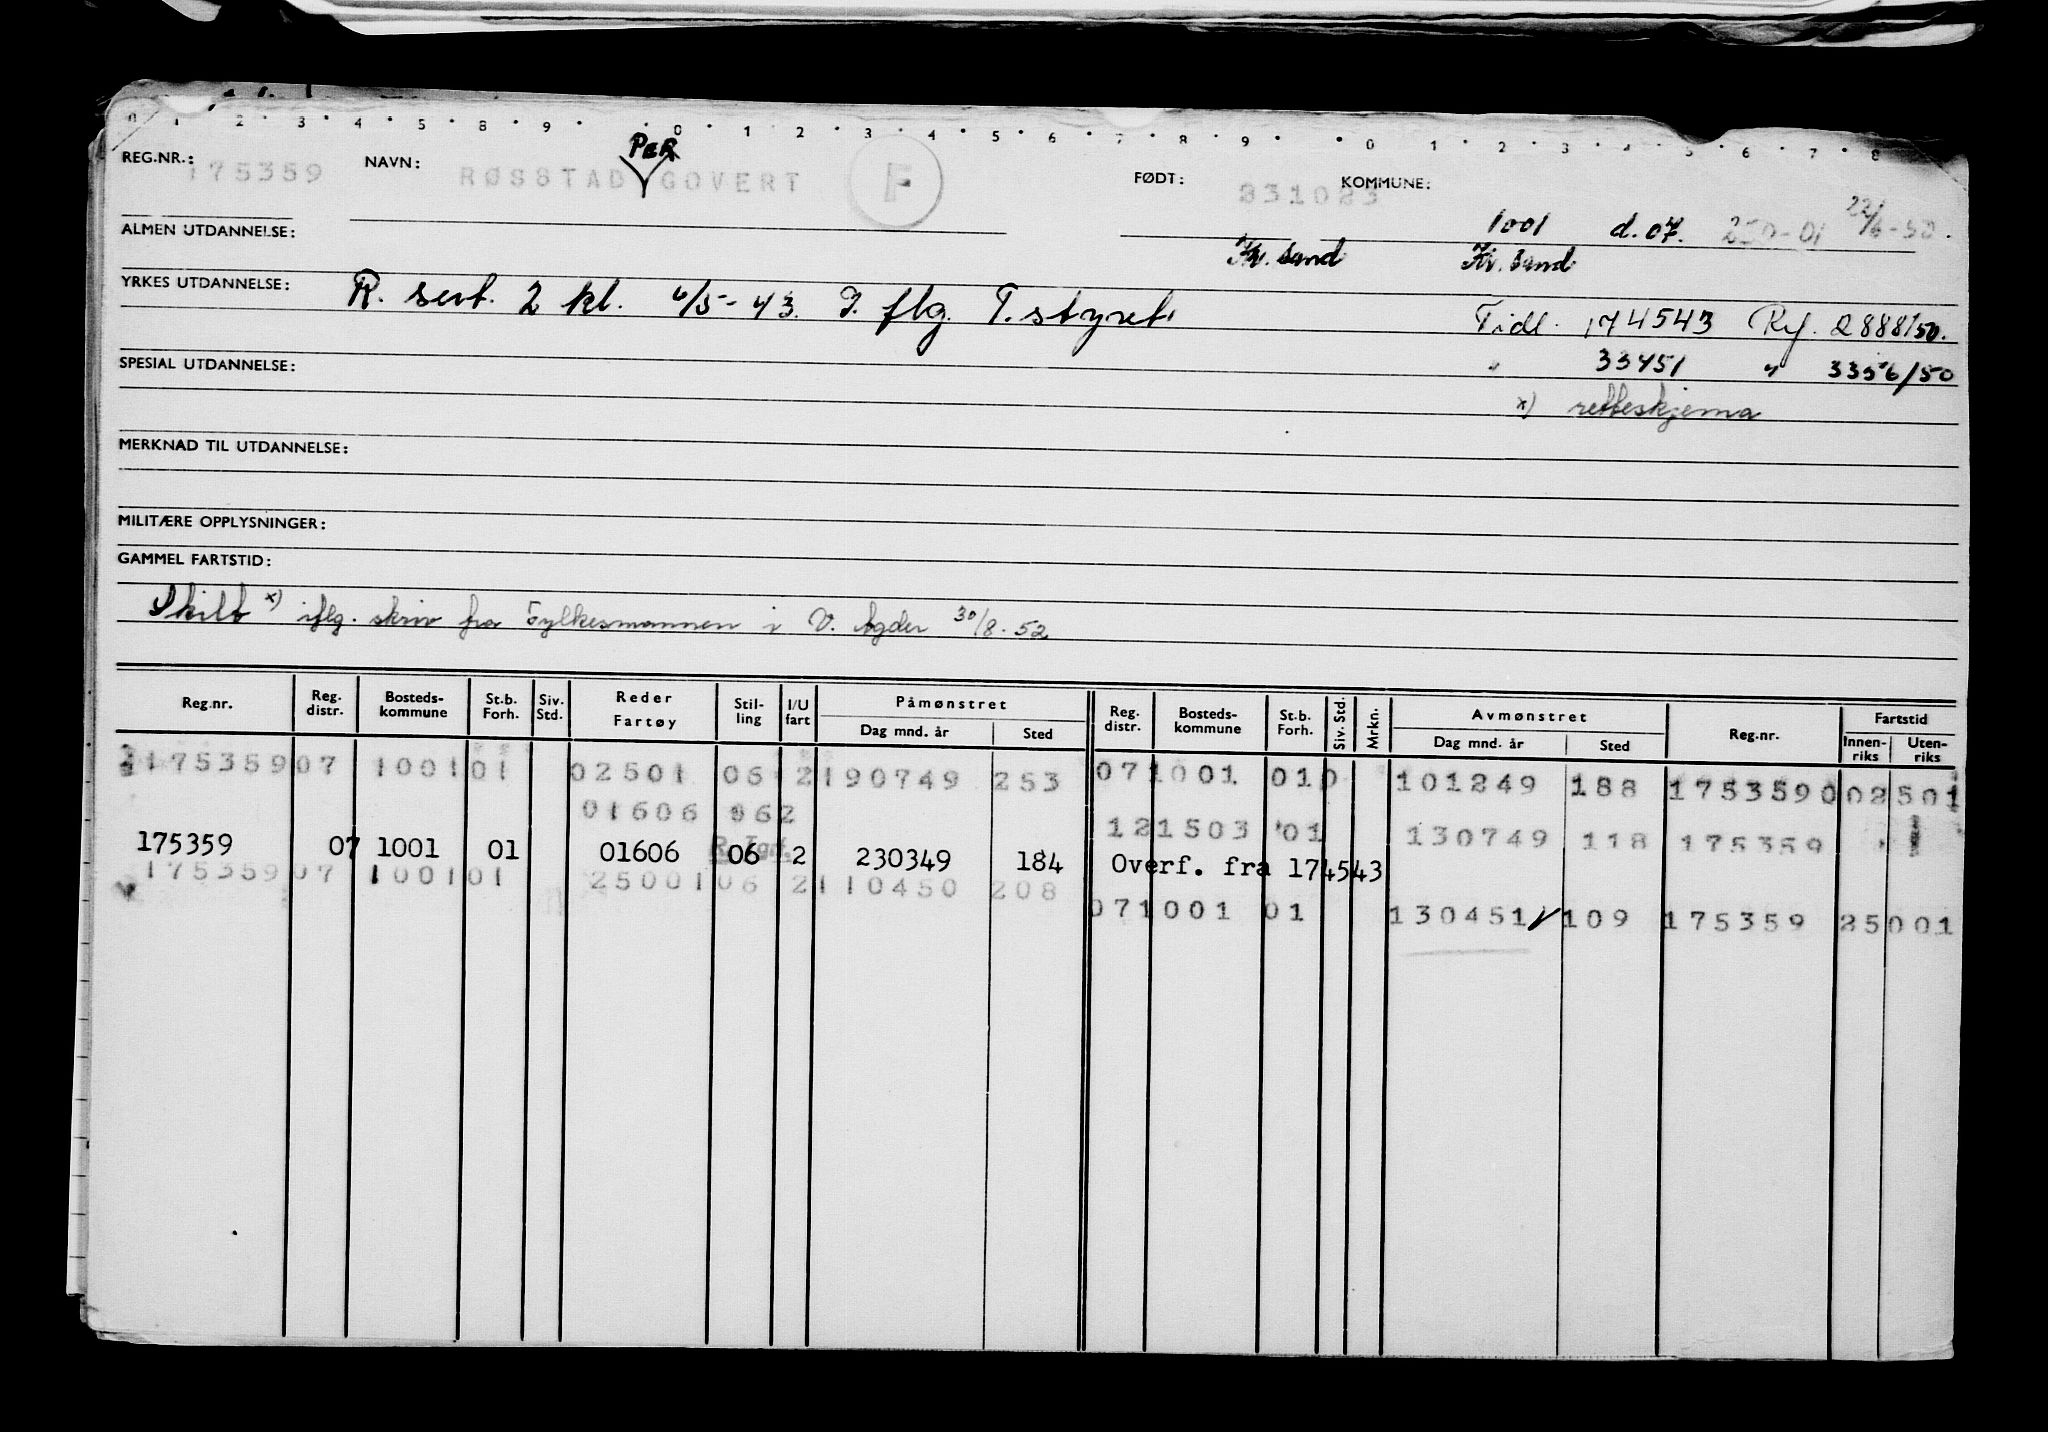 0 1 2 3 4 5 8 9 0 1 2 3 4 5 6 7 8 9 0 1 2 3 4 5 6 7 8
PER
REG.NR.: 175359 NAVN: RØSSTAD GOVERT F FØDT: 231023 KOMMUNE:
1001 d. 07. 250-01 22/6-50.
ALMEN UTDANNELSE: Kr. sand Kr. sand
YRKES UTDANNELSE: R. sert. 2 kl. 4/5-43. I. flg. T. styret.
Tidl. 174543 Ref. 2888/50.
SPESIAL UTDANNELSE: " 33451 " 3356/50
x) retteskjema
MERKNAD TIL UTDANNELSE:
MILITÆRE OPPLYSNINGER:
GAMMEL FARTSTID:
Skilt x) iflg. skriv fra Fylkesmannen i V. Agder 30/8-52
Reg.nr. Reg. distr. Bosteds-kommune St.b. Forh. Siv. Std. Reder Fartøy Stil-ling I/U fart Påmønstret Dag mnd. år Sted Reg. distr. Bosteds-kommune St.b. Forh. Siv. Std. Mrkn. Avmønstret Dag mnd. år Sted Reg.nr. Fartstid Innen-riks Uten-riks
175359 07 1001 01 02501 06 2 190749 253 07 1001 01 0 101249 188 175359 0 02501
01606 062 12 1503 01 130749 118 175359
175359 07 1001 01 01606 R.Tgrf. 06 2 230349 184 Overf. fra 174543
175359 07 1001 01 25001 06 2 110450 208
07 1001 01 130451 109 175359 25001